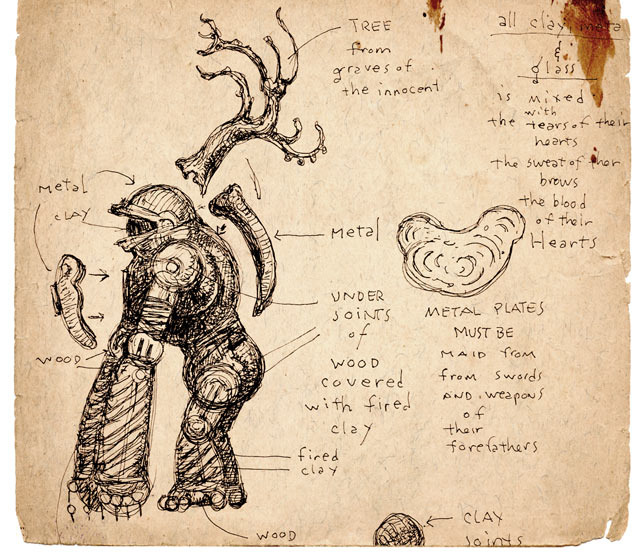 TREE
from
graves of
the innocent
all clay, meta
&
glass
is mixed
with
the tears of their
hearts
the sweat of their
brows
the blood
of their
Hearts
Metal
CLAY
Metal
UNDER
JOINTS
of
WOOD
covered
with fired
clay
METAL PLATES
MUST BE
MAID from
from swords
AND weapons
of
their
forefathers
WOOD
fired
clay
WOOD
CLAY
Joints